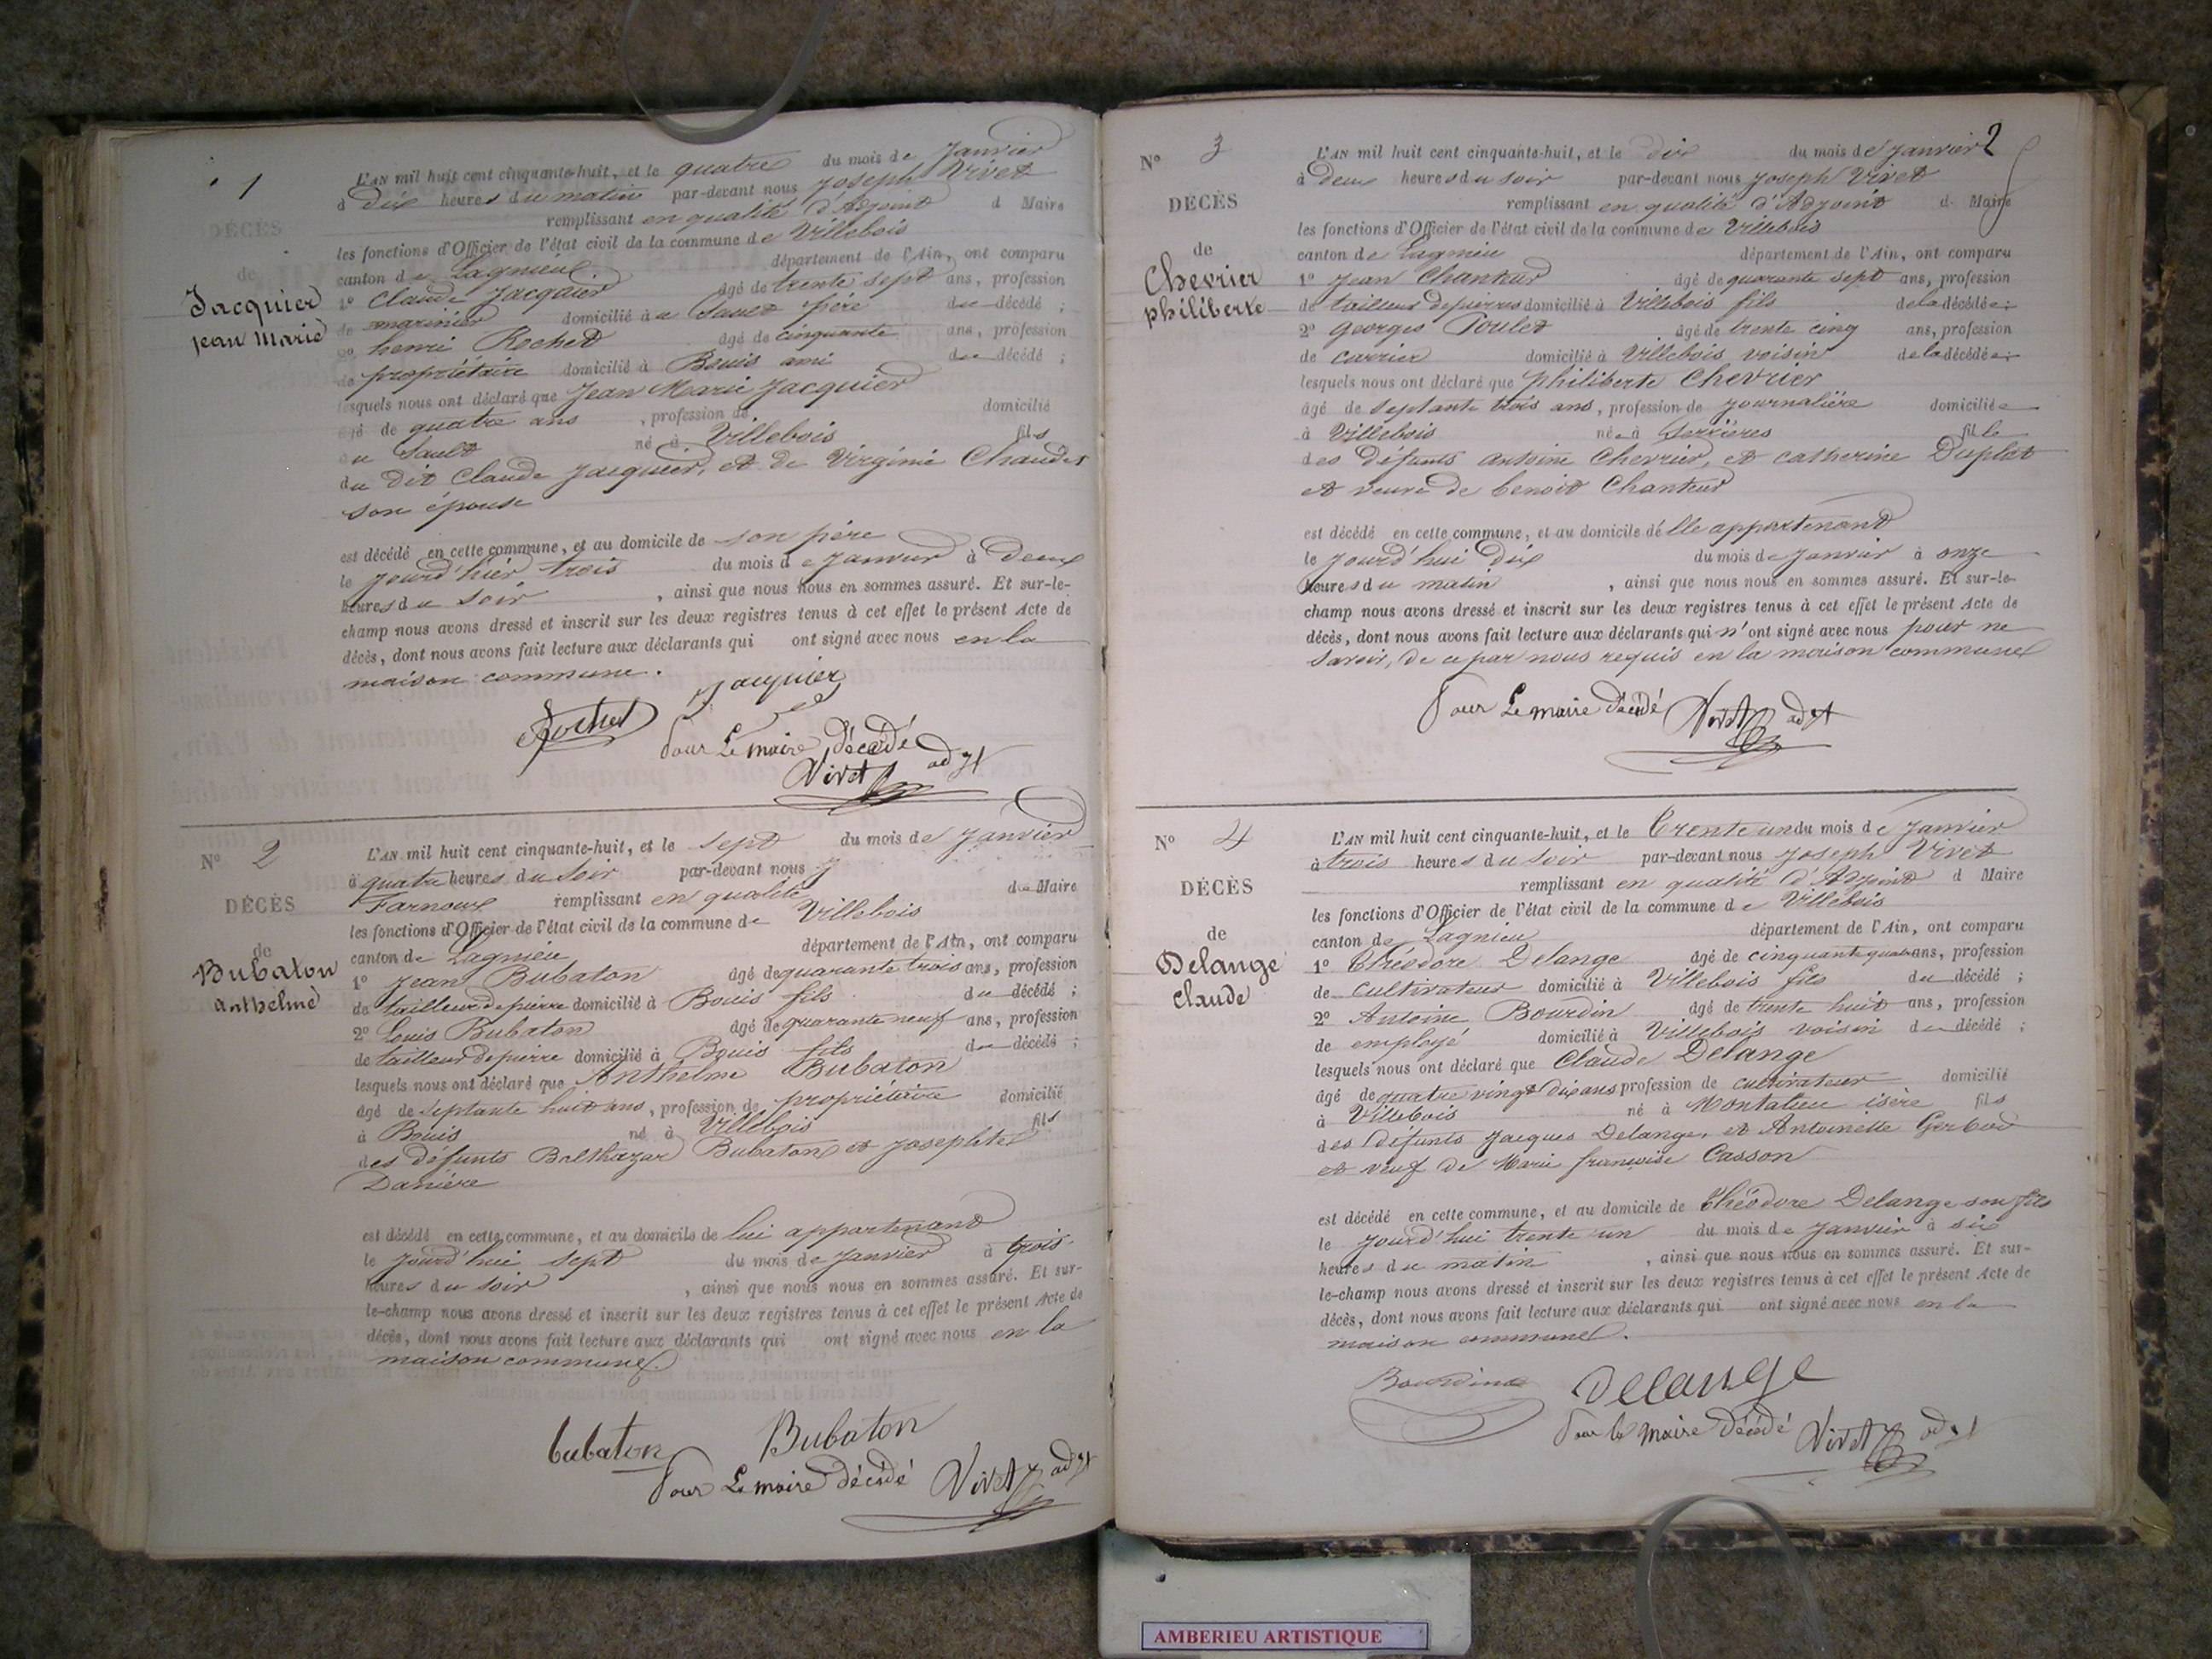 1
DÉCÈS
de
Jacquier
jean Marie
L'AN mil huit cent cinquante-huit, et le quatre du mois de Janvier
à dix heures du matin par-devant nous Joseph Vivet
remplissant en qualité d'Adjoint d Maire
les fonctions d'Officier de l'état civil de la commune de Villebois
canton de Lagnieu. département de l'Ain, ont comparu
1º Claude Jacquier âgé de trente sept ans, profession
de marinier domicilié à u Sault père du décédé ;
2º henri Rochet âgé de cinquante ans, profession
de propriétaire domicilié à Bouis ami du décédé ;
lesquels nous ont déclaré que Jean Marie Jacquier
âgé de quatre ans , profession de domicilié
au Sault né à Villebois fils
du dit Claude Jacquier, et de Virginie Chaudet
son épouse
est décédé en cette commune, et au domicile de son père
le jourd'hier trois du mois de janvier à deux
heures du soir , ainsi que nous nous en sommes assuré. Et sur-le-
champ nous avons dressé et inscrit sur les deux registres tenus à cet effet le présent Acte de
décès, dont nous avons fait lecture aux déclarants qui ont signé avec nous en la
maison commune.
Jacquier
Rochet
Pour Le maire décédé
Vivet adjt
Nº 2
DÉCÈS
de
Bubaton
anthelme
L'AN mil huit cent cinquante-huit, et le sept du mois de janvier
à quatre heures du soir par-devant nous J
Farnoux remplissant en qualité de Maire
les fonctions d'Officier de l'état civil de la commune de Villebois
canton de Lagnieu département de l'Ain, ont comparu
1º Jean Bubaton âgé de quarante trois ans, profession
de tailleur de pierre domicilié à Bouis fils du décédé ;
2º Louis Bubaton âgé de quarante neuf ans, profession
de tailleur de pierre domicilié à Bouis fils du décédé ;
lesquels nous ont déclaré que Anthelme Bubaton
âgé de septante huit ans, profession de propriétaire domicilié
à Bouis né à Villebois fils
des défunts Balthazar Bubaton et josephte
Danière
est décédé en cette commune, et au domicile de lui appartenant
le jourd'hui sept du mois de janvier à trois
heures du soir , ainsi que nous nous en sommes assuré. Et sur-
le-champ nous avons dressé et inscrit sur les deux registres tenus à cet effet le présent Acte de
décès, dont nous avons fait lecture aux déclarants qui ont signé avec nous en la
maison commune.
bubaton Bubaton
Pour Le maire décédé Vivet adjt
2
Nº 3
DÉCÈS
de
Chevrier
philiberte
L'AN mil huit cent cinquante-huit, et le dix du mois de janvier
à Deux heures du soir par-devant nous Joseph Vivet
remplissant en qualité d'Adjoint d Maire
les fonctions d'Officier de l'état civil de la commune de Villebois
canton de Lagnieu département de l'Ain, ont comparu
1º Jean Chanteur âgé de quarante sept ans, profession
de tailleur de pierres domicilié à Villebois fils de la décédée ;
2º Georges Poulet âgé de trente cinq ans, profession
de carrier domicilié à Villebois voisin de la décédée ;
lesquels nous ont déclaré que philiberte Chevrier
âgé de septante trois ans, profession de journalière domiciliée
à Villebois née à Serrières fille
des défunts antoine Chevrier, et catherine Duplat
et veuve de benoit Chanteur
est décédé en cette commune, et au domicile d'elle appartenant
le jourd'hui dix du mois de janvier à onze
heures du matin , ainsi que nous nous en sommes assuré. Et sur-le-
champ nous avons dressé et inscrit sur les deux registres tenus à cet effet le présent Acte de
décès, dont nous avons fait lecture aux déclarants qui n'ont signé avec nous pour ne
savoir, de ce par nous requis en la maison commune
Pour Le maire décédé Vivet adjt
Nº 4
DÉCÈS
de
Delange
claude
L'AN mil huit cent cinquante-huit, et le Trente un du mois de janvier
à trois heures du soir par-devant nous Joseph Vivet
remplissant en qualité d'Adjoint d Maire
les fonctions d'Officier de l'état civil de la commune de Villebois
canton de Lagnieu département de l'Ain, ont comparu
1º Théodore Delange âgé de cinquante quatre ans, profession
de cultivateur domicilié à Villebois fils du décédé ;
2º Antoine Bourdin âgé de trente huit ans, profession
de employé domicilié à Villebois voisin du décédé ;
lesquels nous ont déclaré que Claude Delange
âgé de quatre vingt dix ans profession de cultivateur domicilié
à Villebois né à Montalieu isère fils
des défunts Jacques Delange, et Antoinette Gerbod
et veuf de Marie françoise Casson
est décédé en cette commune, et au domicile de Théodore Delange son fils
le jourd'hui trente un du mois de janvier à six
heures du matin , ainsi que nous nous en sommes assuré. Et sur-
le-champ nous avons dressé et inscrit sur les deux registres tenus à cet effet le présent Acte de
décès, dont nous avons fait lecture aux déclarants qui ont signé avec nous en la
maison commune.
Bourdin Delange
Pour le maire décédé Vivet adjt
AMBERIEU ARTISTIQUE